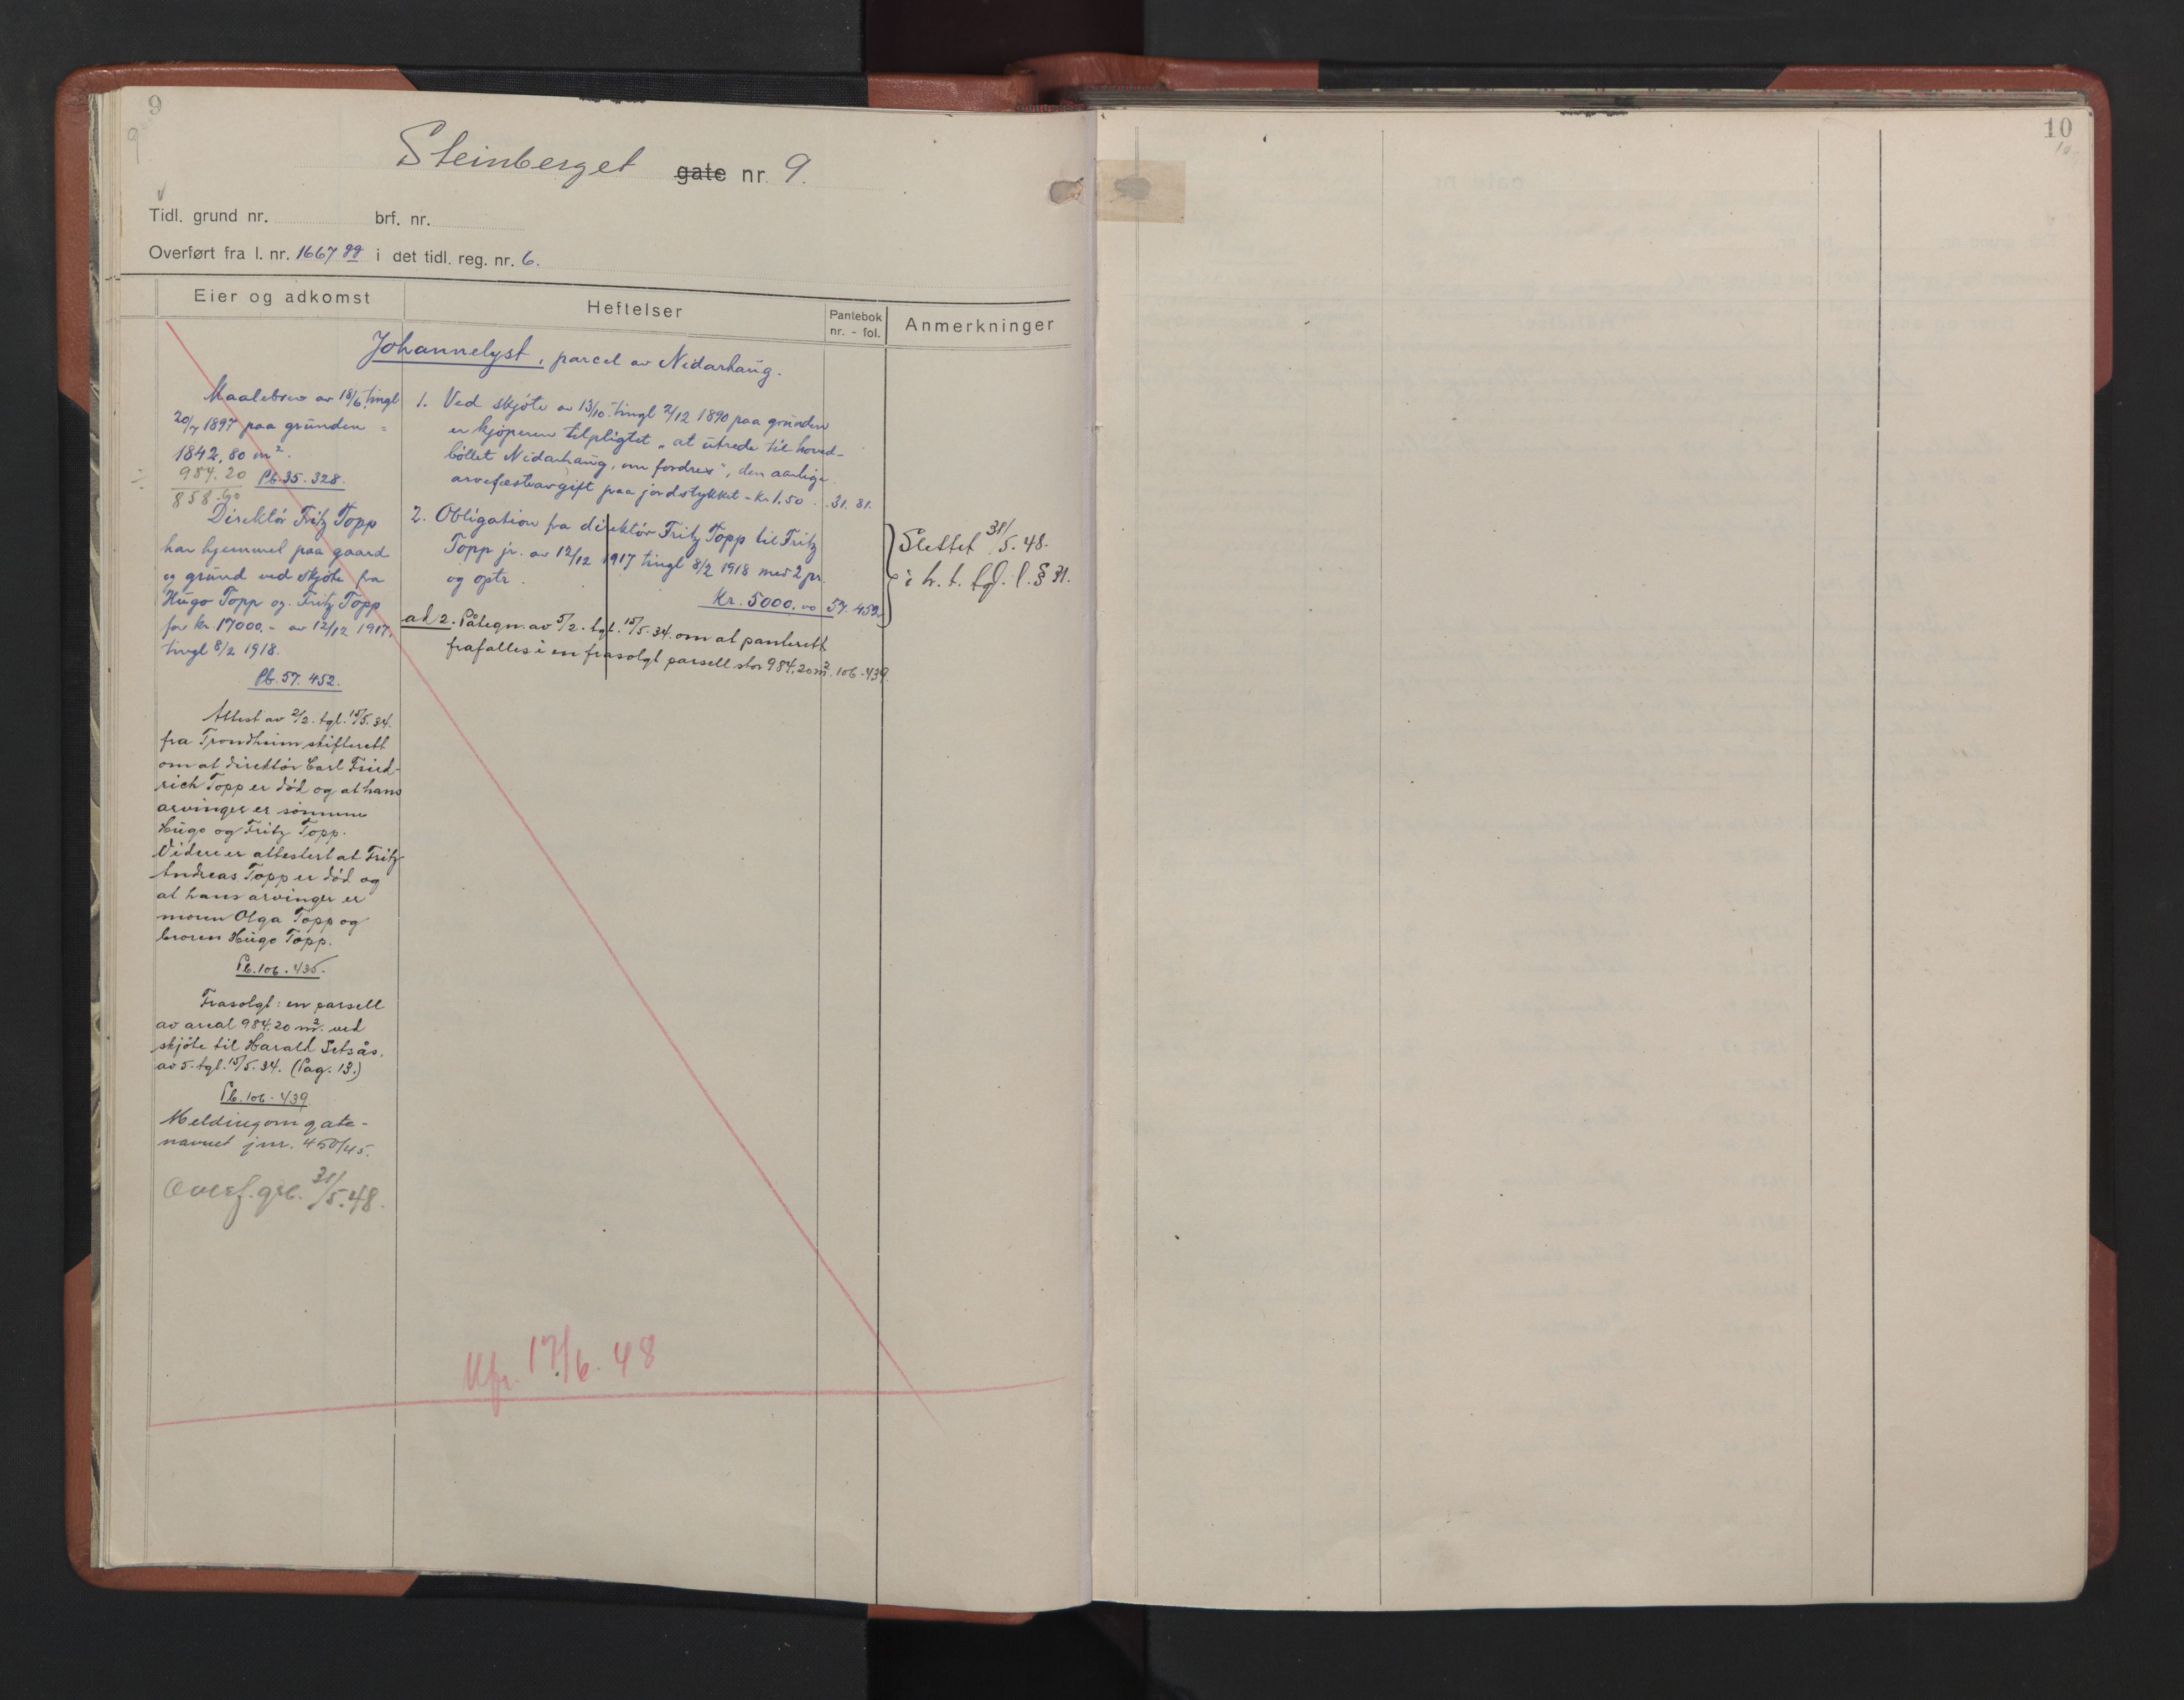 9
9
Steinberget gate nr. 9.
Tidl. grund nr. brf. nr.
Overført fra l. nr. 1667 gg i det tidl. reg. nr. 6.
Eier og adkomst
Heftelser
Pantebok
nr. - fol.
Anmerkninger
Johannelyst, parcel av Nidarhaug.
Maalebrev av 18/6 tingl
20/7 1897 paa grunden =
1842,80 m².
÷ 984.20 Pb. 35. 328.
858.60
Direktör Fritz Topp
har hjemmel paa gaard
og grund ved skjöte fra
Hugo Topp og Fritz Topp
for kr. 17000.- av 12/12 1917,
tingl 8/2 1918.
Pb. 57. 452.
Attest av 2/2. tgl. 15/5. 34.
fra Trondheim skifterett
om at direktör Carl Fried-
rich Topp er död og at hans
arvinger er sönnene
Hugo og Fritz Topp.
Videre er attestert at Fritz
Andreas Topp er död og
at hans arvinger er
moren Olga Topp og
broren Hugo Topp.
Pb. 106. 435.
Frasolgt: en parsell
av areal 984.20 m². ved
skjöte til Harald Setsås.
av 5. tgl. 15/5. 34. (Pag. 13.)
Pb. 106. 439.
Melding om gate-
navnet jnr. 450/45.
Overf. grb. 31/5. 48.
1. Ved skjöte av 13/10. tingl 2/12 1890 paa grunden
er kjöperen tilpligtet „at utrede til hoved-
böllet Nidarhaug, om fordres", den aarlige
arvefæsteavgift paa jordstykket - kr. 1.50. 31. 81.
2. Obligation fra direktör Fritz Topp til Fritz
Topp jr. av 12/12 1917 tingl 8/2 1918 med 2 pr.
og optr.
Kr. 5000.00 57. 452.
ad 2. Påtegn. av 5/2. tgl. 15/5. 34. om at panterett
frafalles i en frasolgt parsell stor 984.20 m². 106 - 439.
Slettet 31/5. 48.
i h. t. tgl. l. § 31.
Kfr. 17/6. 48
10
10